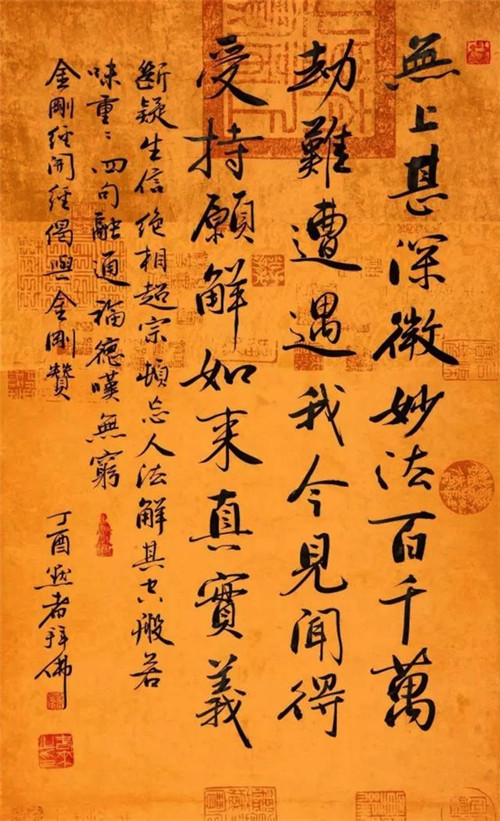 無上甚深微妙法百千萬
劫難遭遇我今見聞得
受持願解如来真實義
斷疑生信絕相超宗頓忘人法解真空般若
味重〻四句融通福德嘆無窮
金剛經開經偈與金剛贊
丁酉默者拜佛